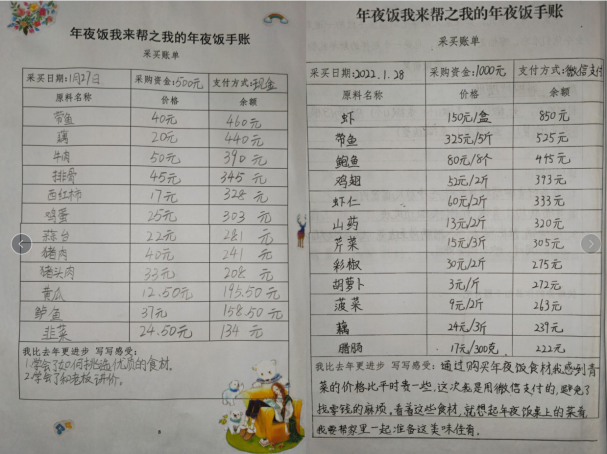 年夜饭我来帮之我的年夜饭手账
采买账单
采买日期:1月27日 采购资金:500元 支付方式:现金
原料名称 价格 余额
带鱼 40元 460元
藕 20元 440元
牛肉 50元 390元
排骨 45元 345元
西红柿 17元 328元
鸡蛋 25元 303元
蒜台 22元 281元
猪肉 40元 241元
猪头肉 33元 208元
黄瓜 12.50元 195.50元
鲈鱼 37元 158.50元
韭菜 24.50元 134元
我比去年更进步 写写感受:
1.学会了如何挑选优质的食材.
2.学会了和老板讲价.
年夜饭我来帮之我的年夜饭手账
采买账单
采买日期:2022.1.28 采购资金:1000元 支付方式:微信支付
原料名称 价格 余额
虾 150元/盒 850元
带鱼 325元/5斤 525元
鲍鱼 80元/8个 445元
鸡翅 52元/2斤 393元
虾仁 60元/2斤 333元
山药 13元/2斤 320元
芹菜 15元/3斤 305元
彩椒 30元/2斤 275元
胡萝卜 3元/斤 272元
菠菜 9元/2斤 263元
藕 24元/3斤 239元
腊肠 17元/300克 222元
我比去年更进步 写写感受:通过购买年夜饭食材我感到青
菜的价格比平时贵一些,这次我是用微信支付的,避免了
找零钱的麻烦。看着这些食材,就想起年夜饭桌上的菜肴
我要帮家里一起准备这美味佳肴.